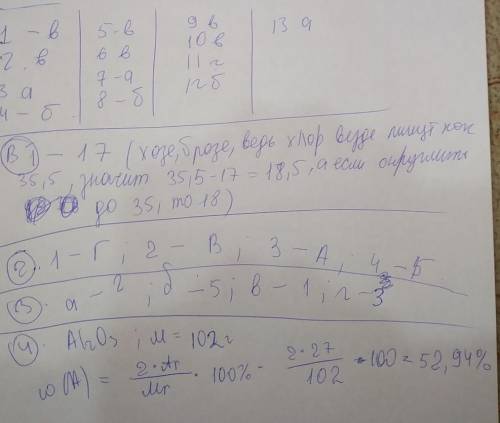 1 – в   5 – в   9 в   13 а
2. в   6 в   10 в
3 а   7 – а   11 г
4 – б   8 – б   12 б
В 1 – 17 ( ведь хлор везде пишут как
35,5, значит 35,5 – 17 = 18,5, а если округлить
до 35, то 18)
2. 1 – Г ; 2 – В ; 3 – А ; 4 – Б
3. а – 2 ; б – 5 ; в – 1 ; г – 3
4. Al2O3 ; М = 102 г
ω(Al) = 2·Ar / Mr · 100% = 2·27 / 102 · 100 = 52,94%